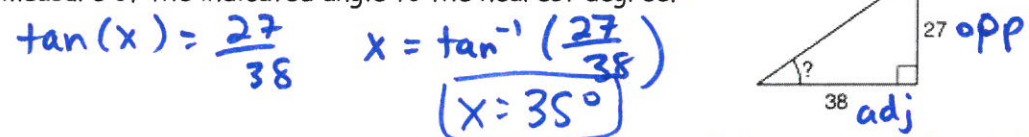 tan(x) = 27/38 x = tan⁻¹(27/38)
x = 35°
27 opp
?
38 adj